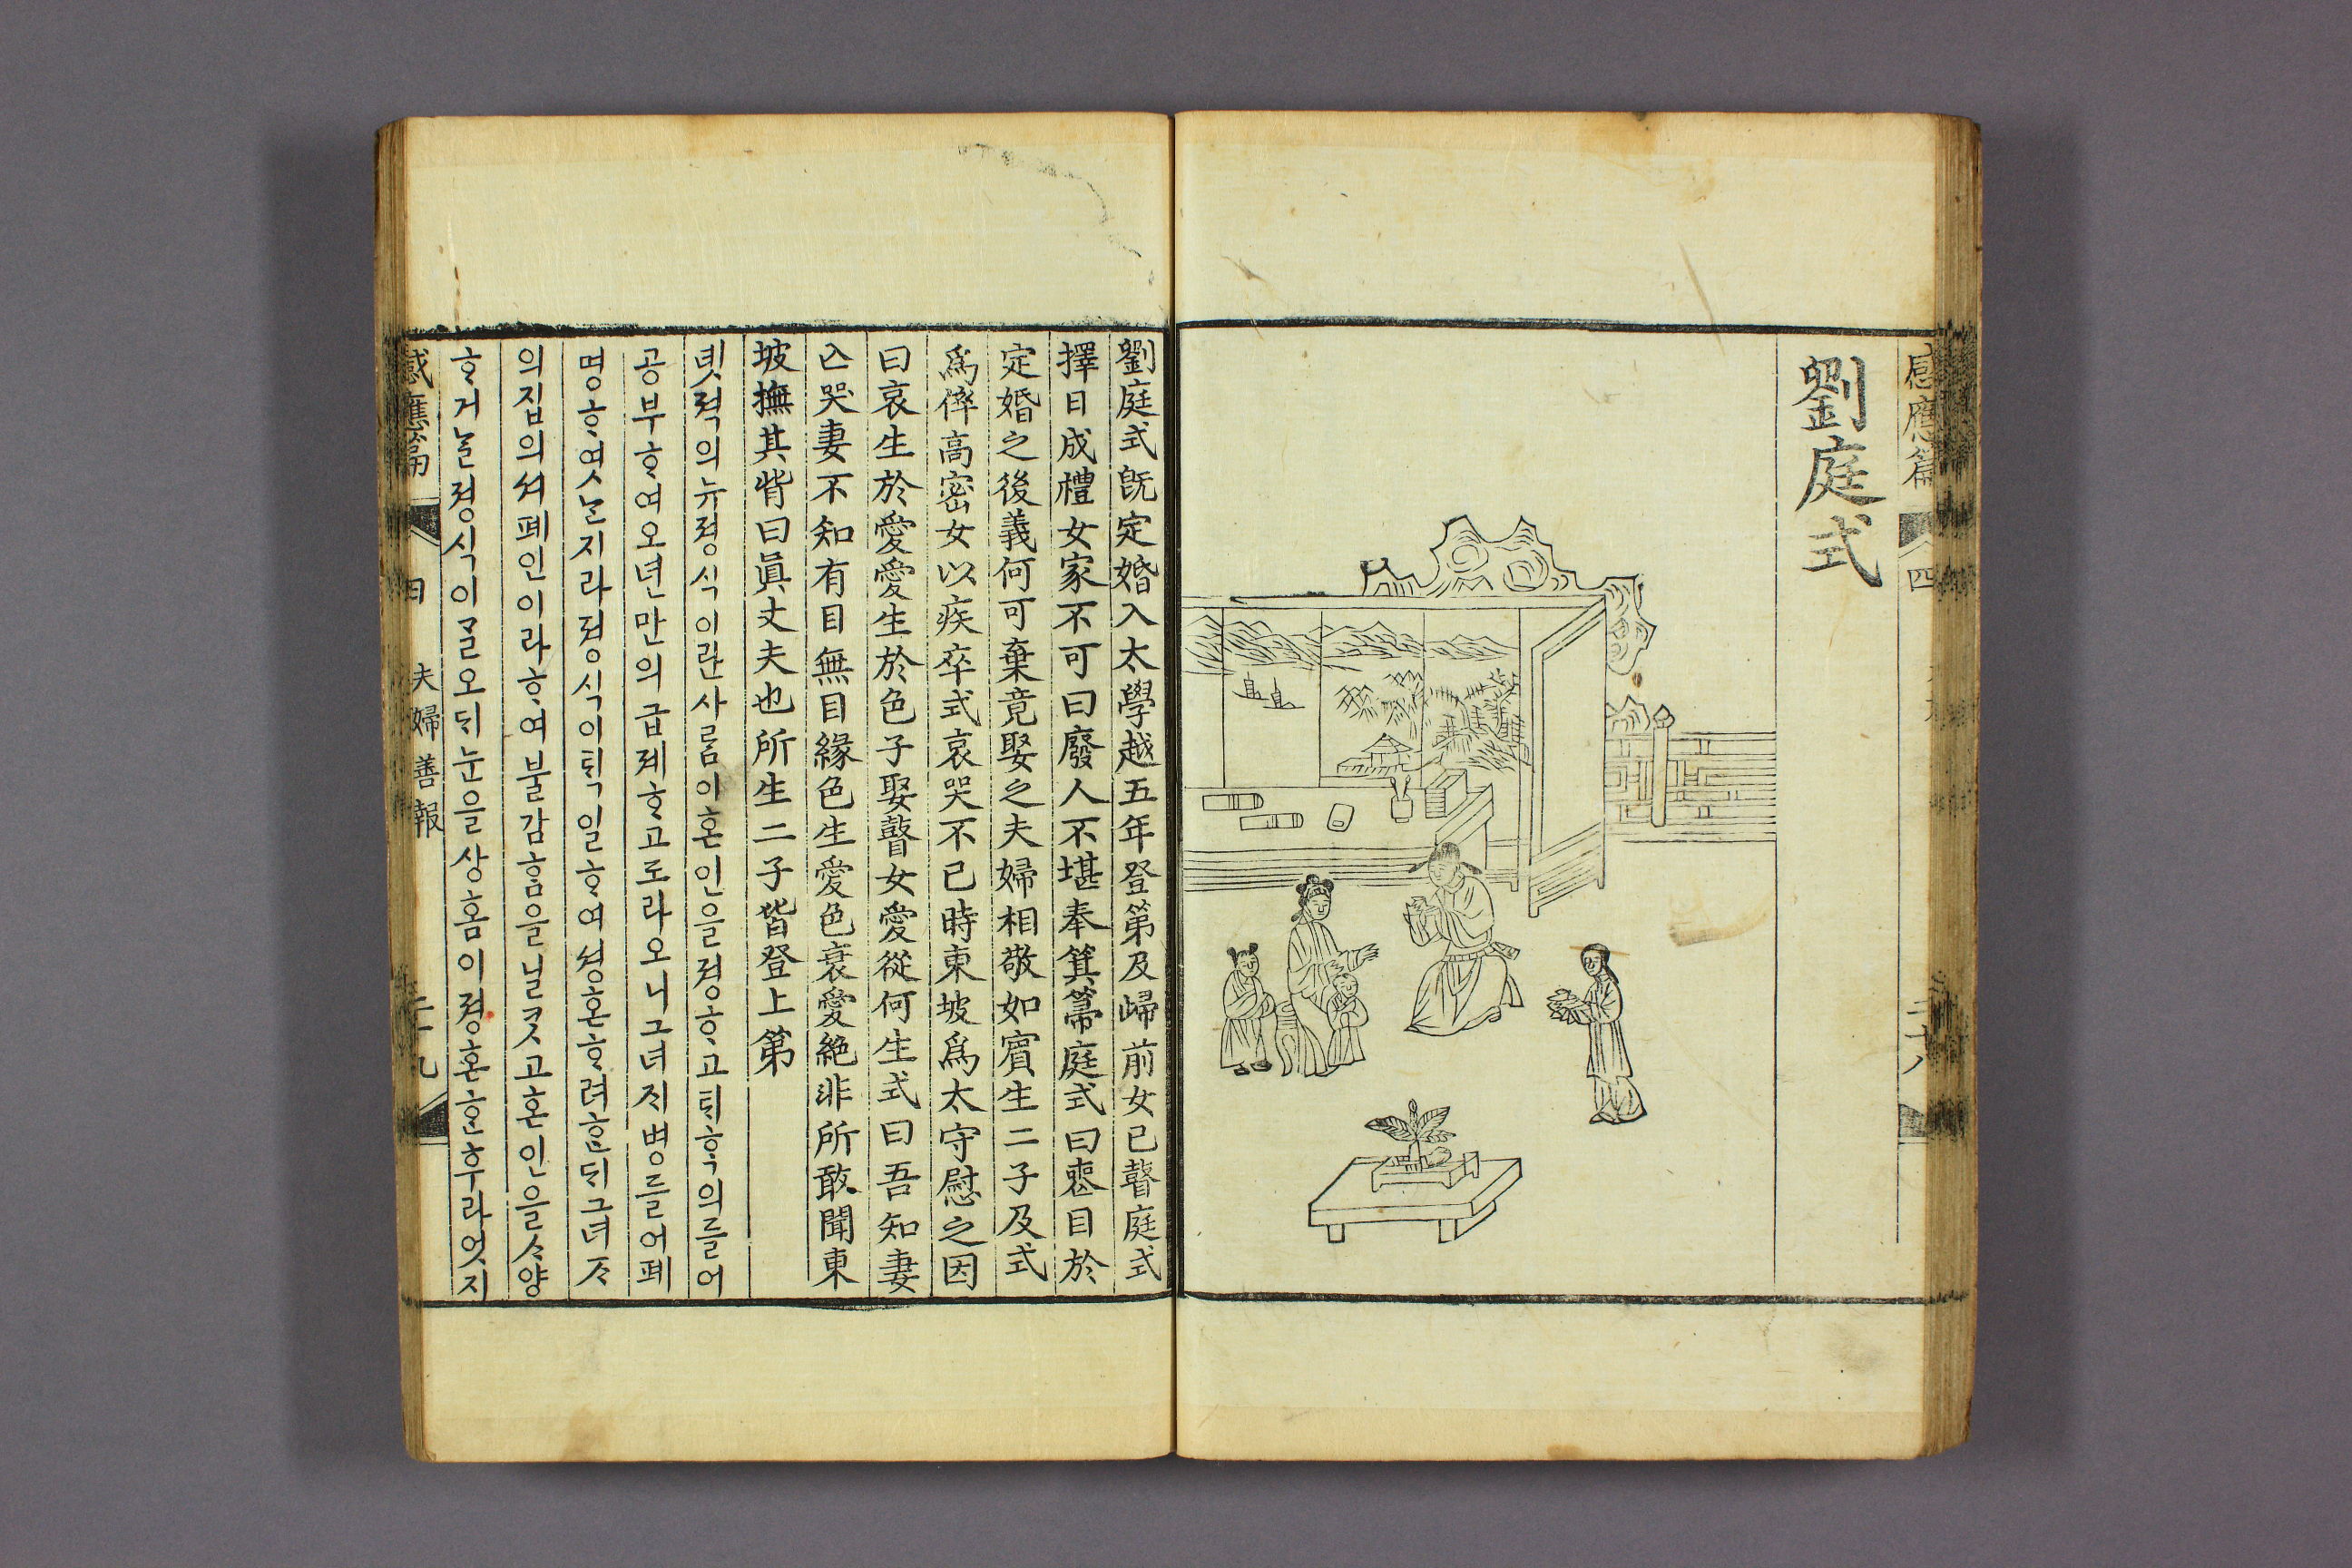 感應篇 四 二十八
劉庭式
劉庭式旣定婚入太學越五年登第及歸前女已瞽庭式
擇日成禮女家不可曰廢人不堪奉箕箒庭式曰喪目於
定婚之後義何可棄竟娶之夫婦相敬如賓生二子及式
爲倅高密女以疾卒式哀哭不已時東坡爲太守慰之因
曰哀生於愛愛生於色子娶瞽女愛從何生式曰吾知妻
亡哭妻不知有目無目緣色生愛色衰愛絶非所敢聞東
坡撫其背曰眞丈夫也所生二子皆登上第
녯젹의 뉴졍식이란 사ᄅᆞᆷ이 혼인을 졍ᄒᆞ고 ᄐᆡᄒᆞᆨ의 들어
공부ᄒᆞ여 오년만의 급졔ᄒᆞ고 도라오니 그녀ᄌᆡ 병들어 폐
명ᄒᆞ엿ᄂᆞᆫ지라 졍식이 ᄐᆡᆨ일ᄒᆞ여 셩혼ᄒᆞ려ᄒᆞᆫᄃᆡ 그녀ᄌᆞ
의 집의셔 폐인이라 ᄒᆞ여 불감ᄒᆞᆷ을 닐ᄏᆞᆺ고 혼인을 ᄉᆞ양
ᄒᆞ거ᄂᆞᆯ 졍식이 ᄀᆞᆯ오ᄃᆡ 눈을 상ᄒᆞᆷ이 졍혼ᄒᆞᆫ 후라 엇지
感應篇 四 夫婦善報 二十九